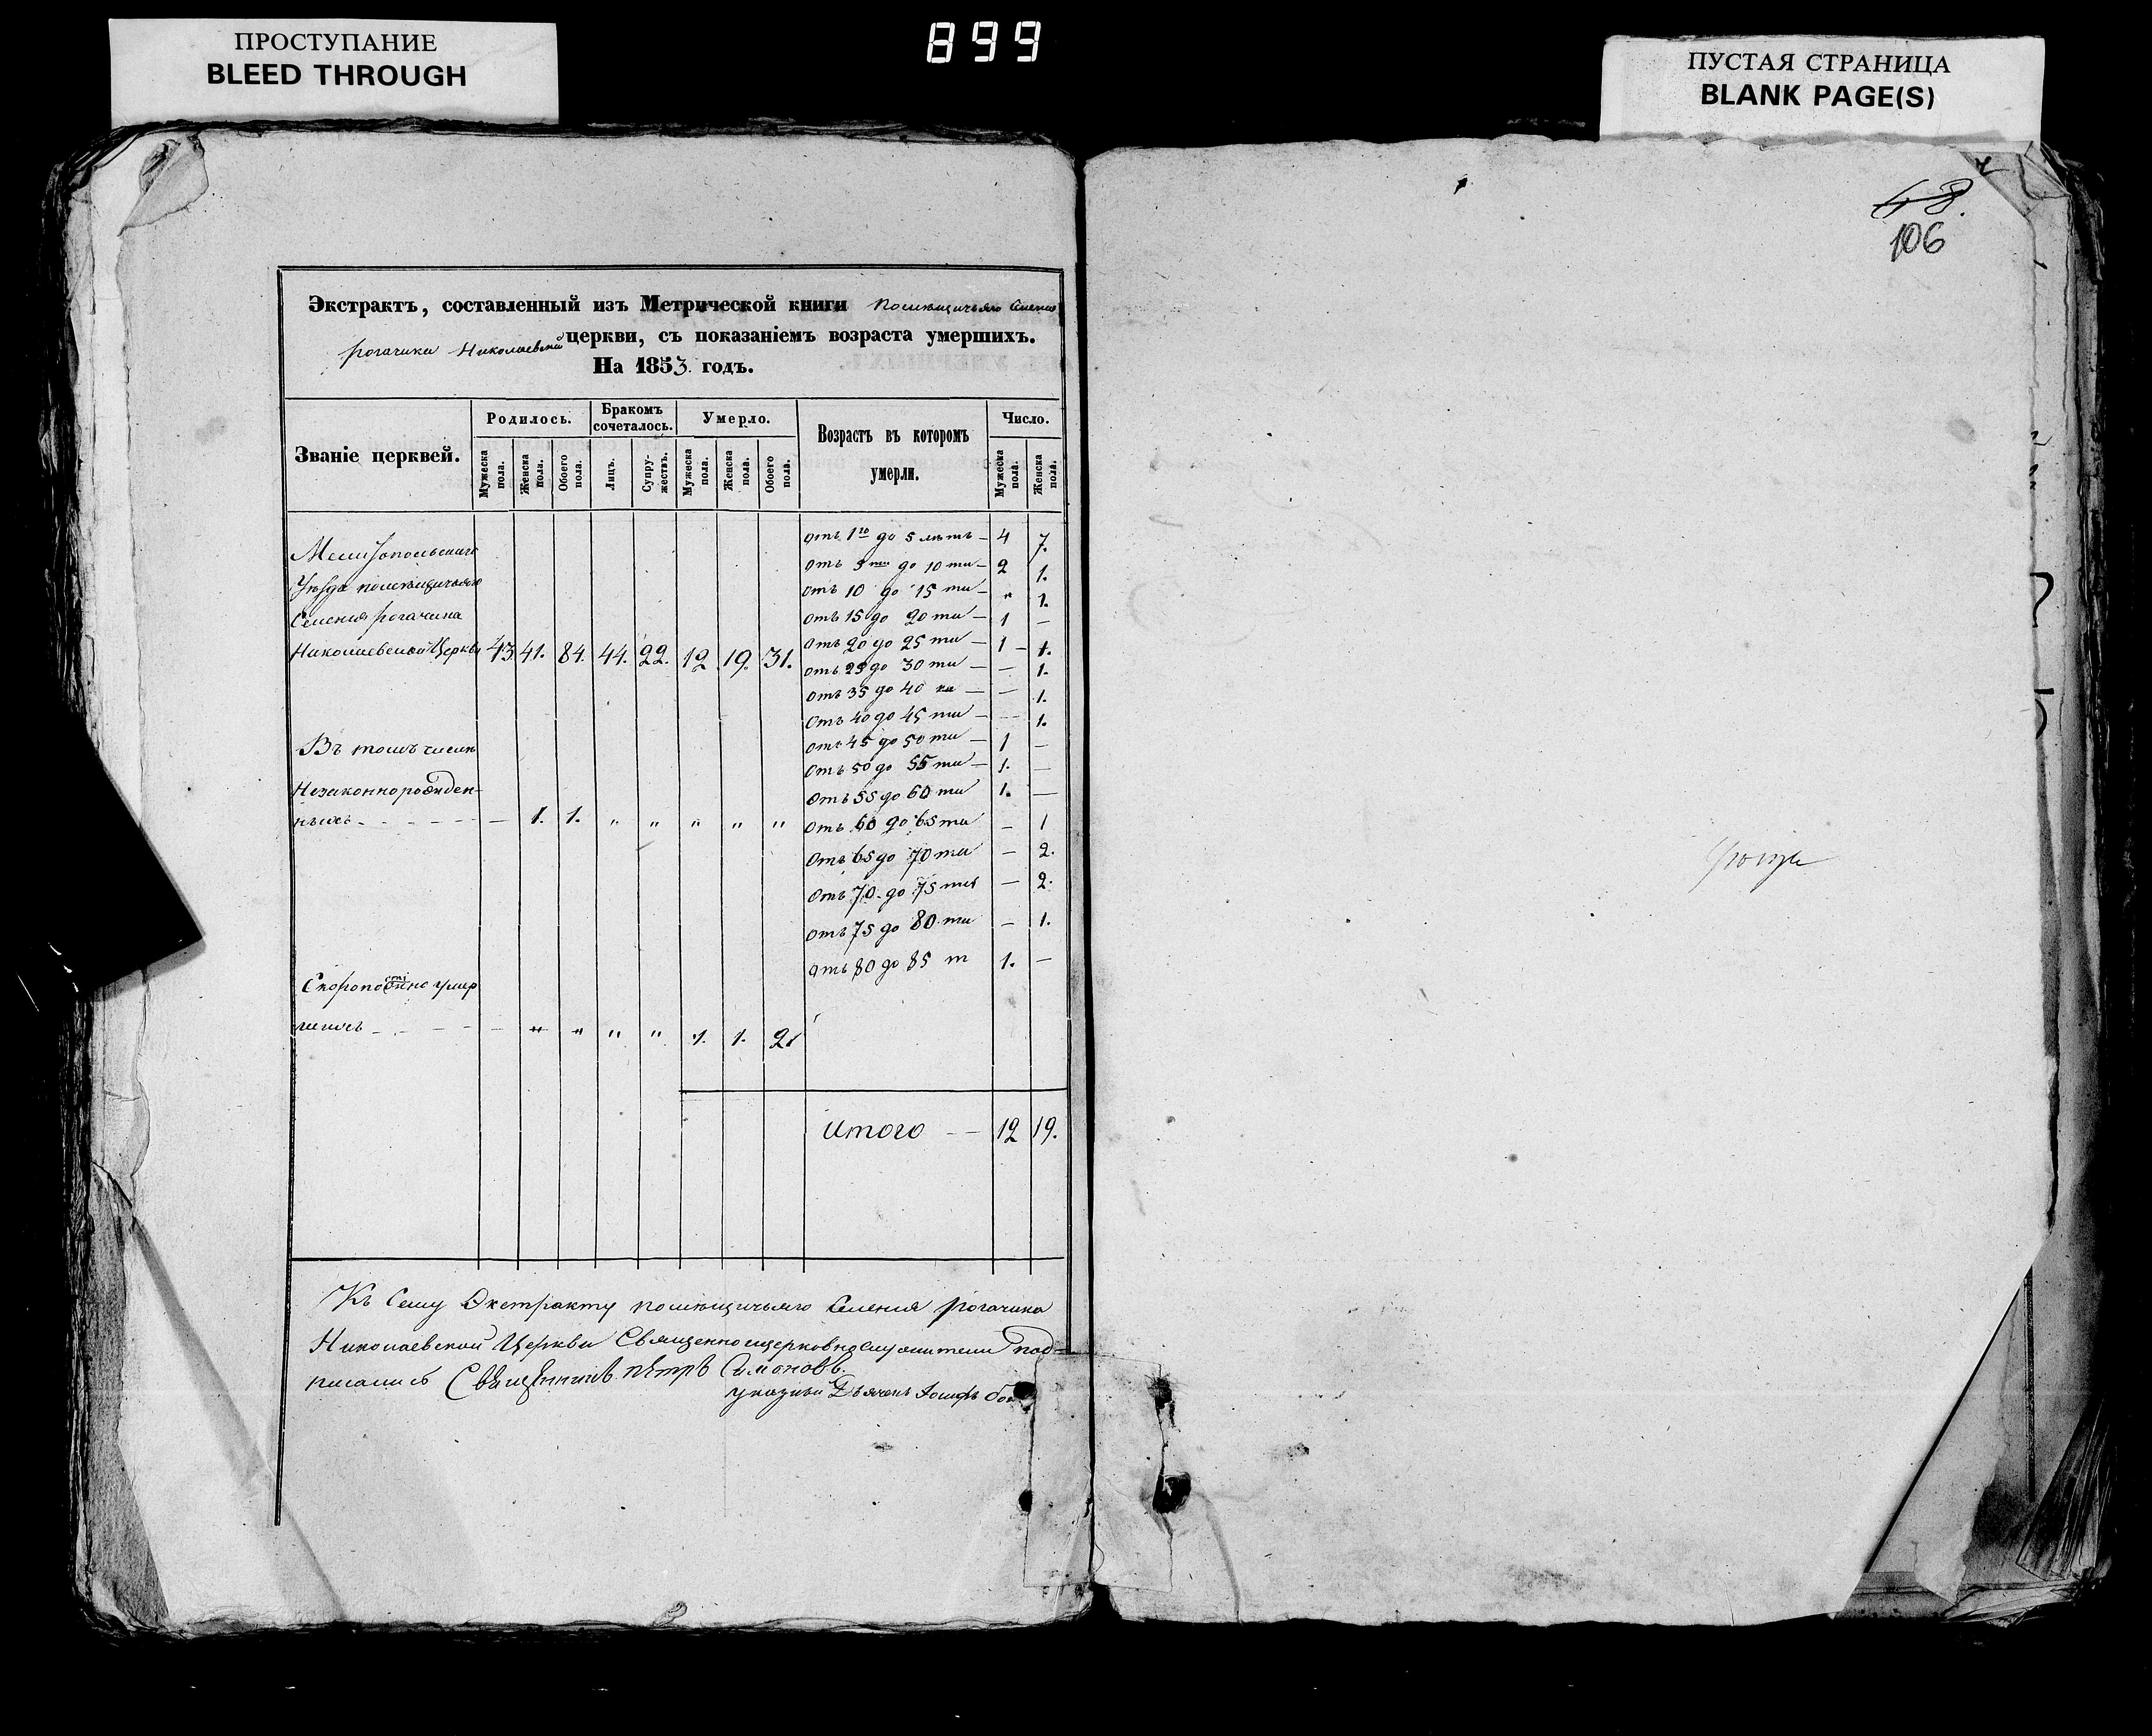 ПРОСТУПАНИЕ
BLEED THROUGH
899
ПУСТАЯ СТРАНИЦА
BLANK PAGE(S)
68.
106
Экстрактъ, составленный изъ Метрической книги помѣщичьяго Селенія
рогачика Николаевской церкви, съ показаніемъ возраста умершихъ.
На 1853. годъ.
Званіе церквей.
Родилось.
Бракомъ сочеталось.
Умерло.
Возрастъ въ которомъ умерли.
Число.
Мужеска пола.
Женска пола.
Обоего пола.
Лицъ.
Супружествъ.
Мужеска пола.
Женска пола.
Обоего пола.
Мужеска пола.
Женска пола.
Мелитопольскаго
Уѣзда помѣщичьяго
Селенія рогачика
Николаевской Церкви 43. 41. 84. 44. 22. 12 19. 31.
Въ томъ числѣ
Незаконнорожден-
ныхъ - - - - - — 1. 1. " " " " "
Скоропостижно умер
шихъ - - - - — " " " " 1. 1. 2.
отъ 1го до 5 лѣтъ — 4 7.
отъ 5ти до 10 ти — 2 1.
отъ 10 до 15 ти — " 1.
отъ 15 до 20 ти — 1 —
отъ 20 до 25 ти — 1 — 1.
отъ 25 до 30 ти — — 1.
отъ 35 до 40 ка — — 1.
отъ 40 до 45 ти — — 1.
отъ 45 до 50 ти — 1 —
отъ 50 до 55 ти — 1. —
отъ 55 до 60 ти 1. —
отъ 60 до 65 ти — 1
отъ 65 до 70 ти — 2.
отъ 70 до 75 ти — 2.
отъ 75 до 80 ти — 1.
отъ 80 до 85 т 1. —
Итого — — 12 19.
Къ Сему Экстракту помѣщичьяго Селенія рогачика
Николаевской Церкви Священноицерковнослужители под-
писались Священникъ Петръ Симоновъ.
указный Дьячокъ Іосифъ